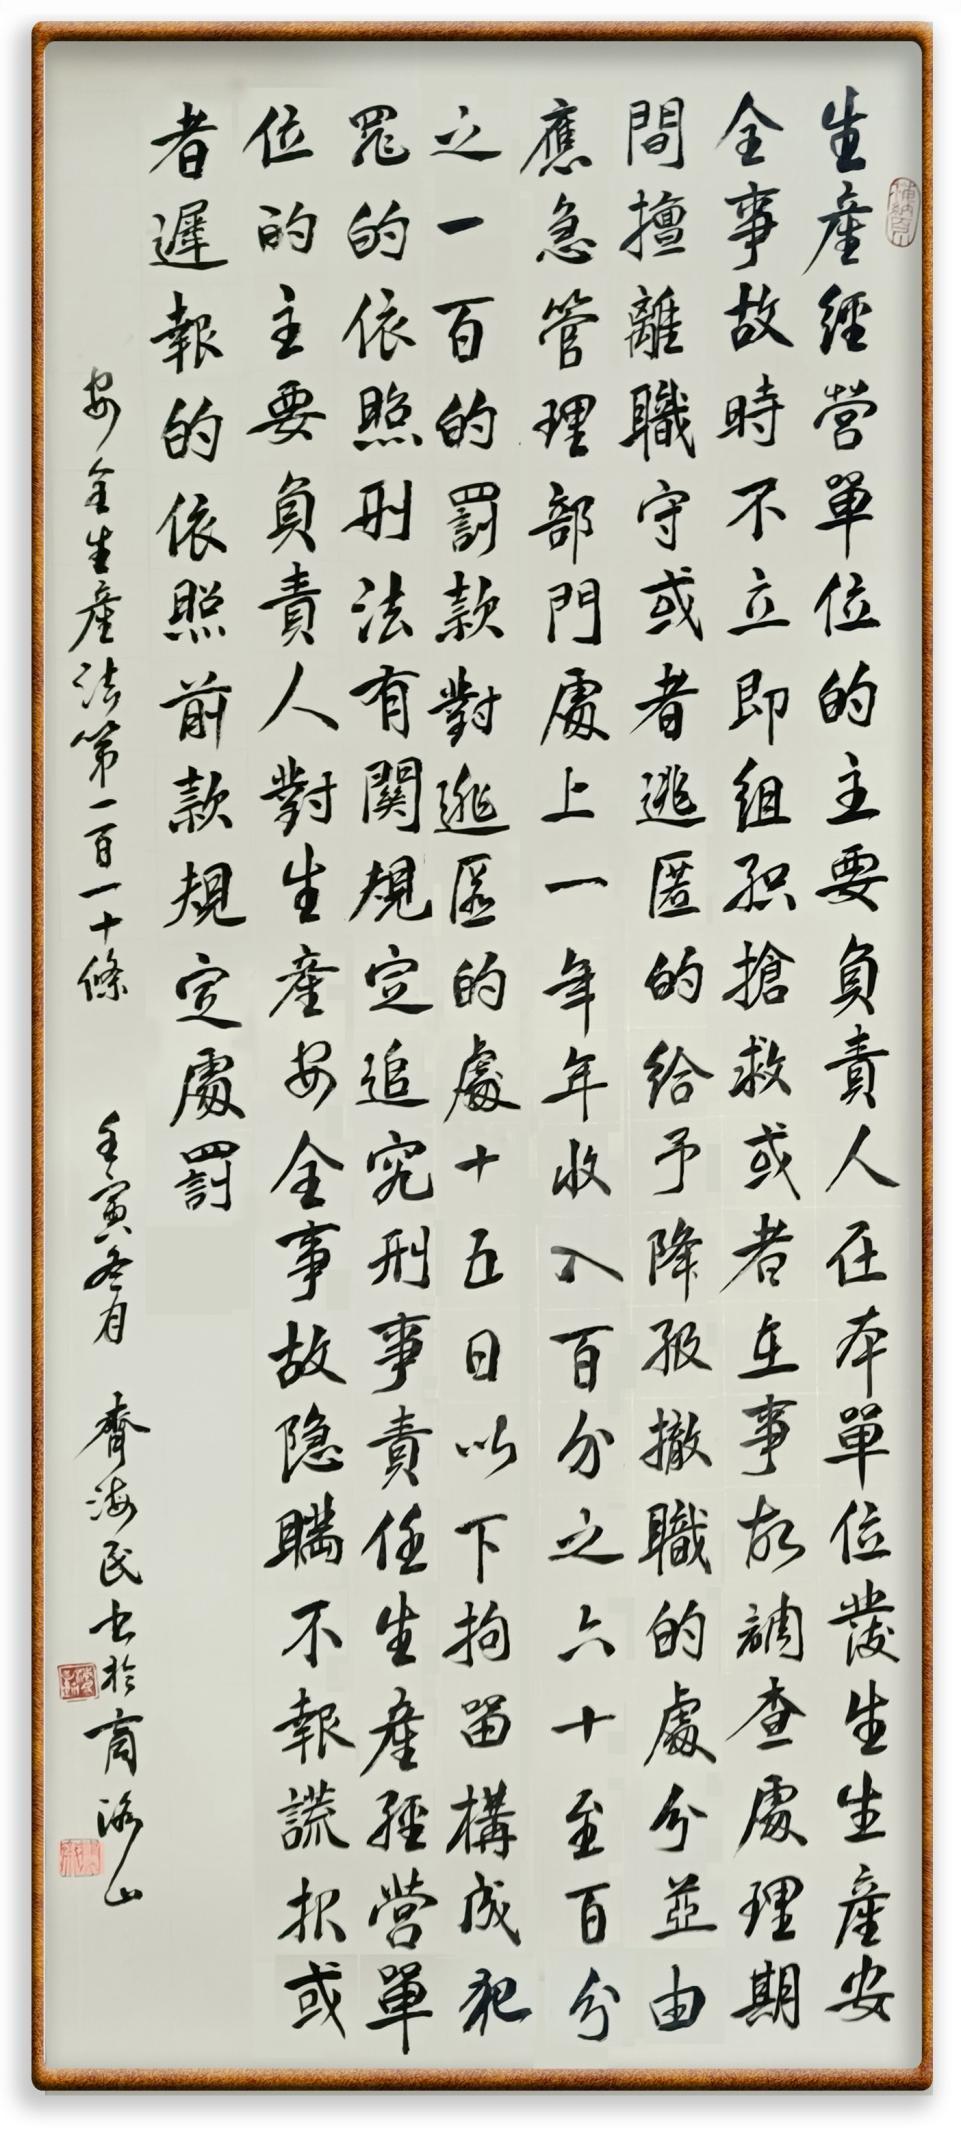 生產經營單位的主要負責人在本單位發生生產安
全事故時不立即組织搶救或者在事故調查處理期
間擅離職守或者逃匿的給予降级撤職的處分並由
應急管理部門處上一年年收入百分之六十至百分
之一百的罰款對逃匿的處十五日以下拘留構成犯
罪的依照刑法有關規定追究刑事責任生產經營單
位的主要負責人對生產安全事故隐瞞不報謊报或
者遲報的依照前款規定處罰
安全生產法第一百一十條 壬寅冬月 齊海民书於商洛山